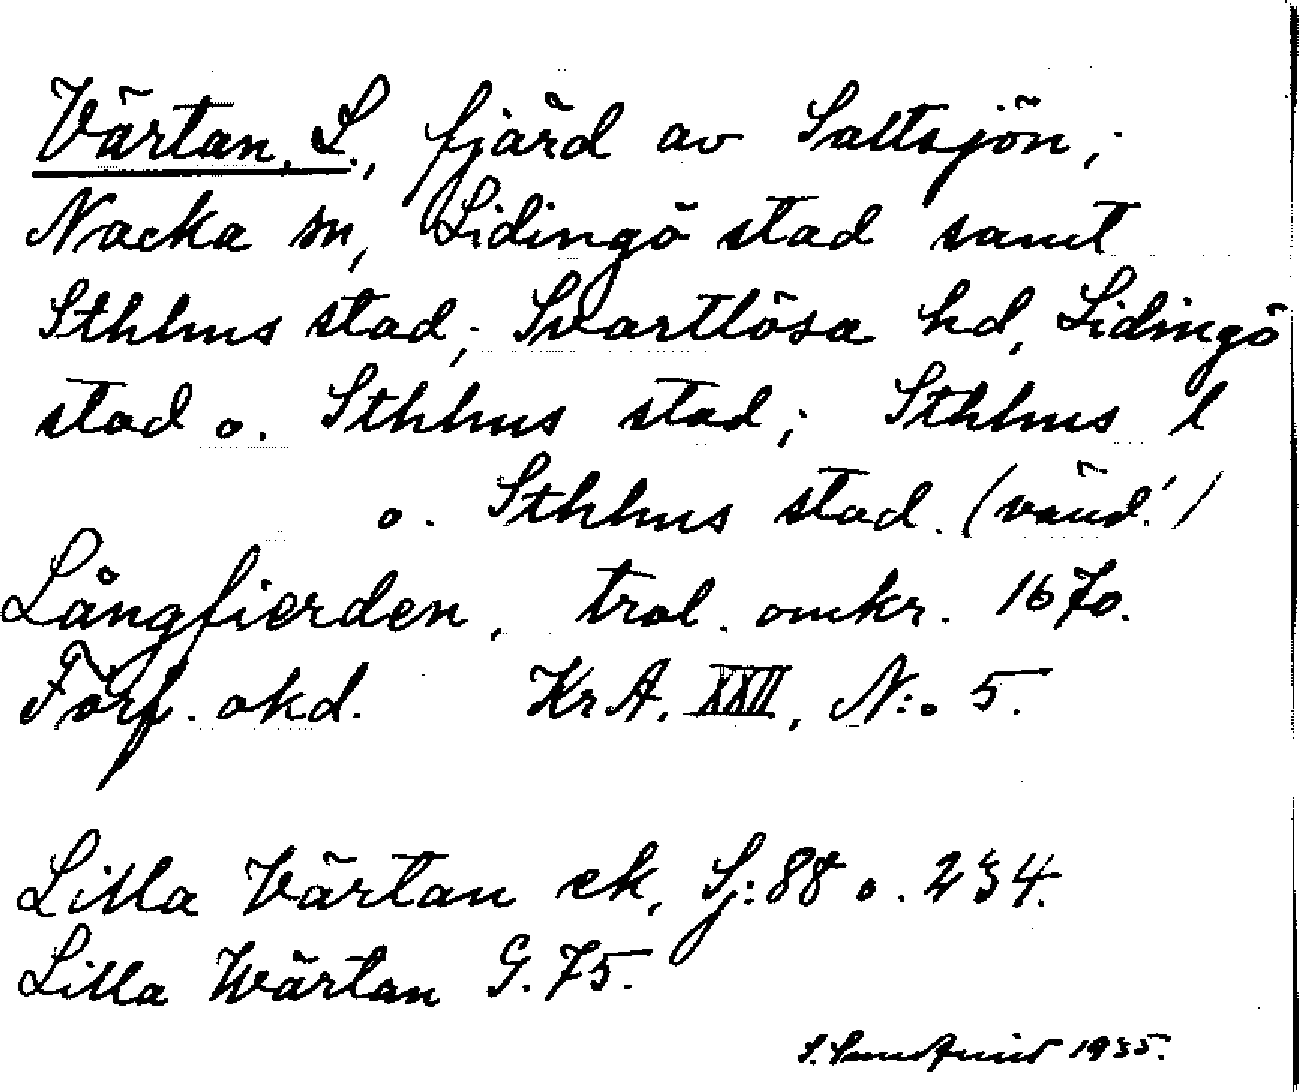 Värtan, L., fjärd av Saltsjön;
Nacka sn, Lidingö stad samt
Sthlms stad; Svartlösa hd, Lidingö
stad o. Sthlms stad; Sthlms l
o. Sthlms stad. (vänd!)
Långfierden, trol. omkr. 1670.
Förf. okd. KrA. XXII, N:o 5.
Lilla Värtan ek, Sj: 88 o. 234.
Lilla Wärtan G. 75.
1935.